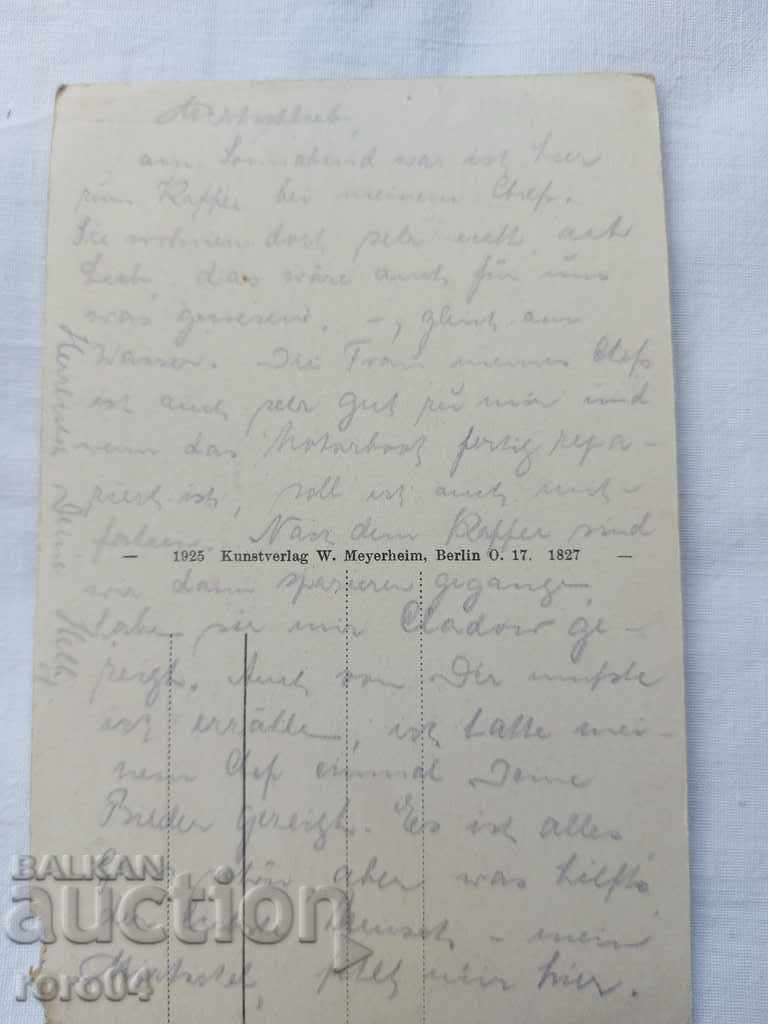 am Sonnabend war ich hier
zum Kaffee bei meinem Chef.
Sie wohnen dort sehr nett, ach
Lieb, das wäre auch für uns
was gewesen. –, gleich am
Wasser. Die Frau meines Chefs
ist auch sehr gut zu mir und
wenn das Motorboot fertig repa-
riert ist, soll ich auch mit-
fahren. Nach dem Kaffee sind
— 1925 Kunstverlag W. Meyerheim, Berlin O. 17. 1827 —
wir dann spazieren gegangen
haben sie mir Cladow ge-
zeigt. Auch von Dir mußte
ich erzählen, ich hatte mei-
nem Chef einmal Deine
Bilder gezeigt. Es ist alles
schön aber was hilfts
der Mensch – mein
fehlt mir hier.
Herzlichst Deine
BALKAN
auction
roro04